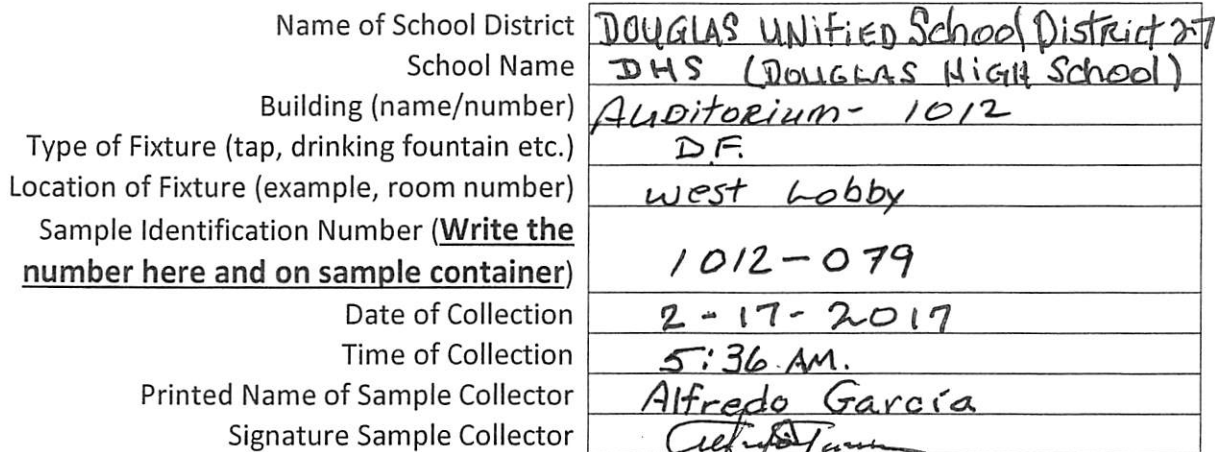 Name of School District DOUGLAS UNiFiED School District 27
School Name DHS (DOUGLAS HiGH School)
Building (name/number) AUDitORium - 1012
Type of Fixture (tap, drinking fountain etc.) D.F.
Location of Fixture (example, room number) west Lobby
Sample Identification Number (Write the
number here and on sample container) 1012-079
Date of Collection 2-17-2017
Time of Collection 5:36 AM.
Printed Name of Sample Collector Alfredo García
Signature Sample Collector